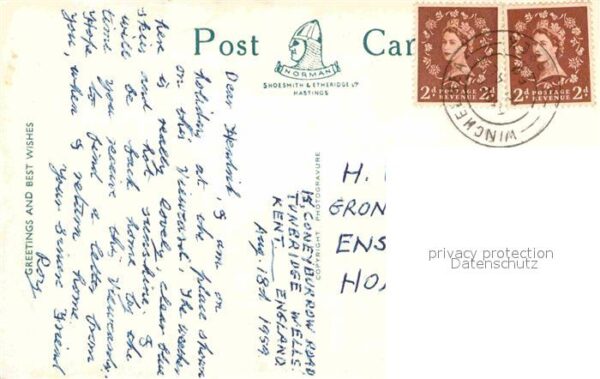 Post Car
NORMAN
SHOESMITH & ETHERIDGE LTD
HASTINGS
2d POSTAGE REVENUE 2d
2d POSTAGE REVENUE 2d
WINCHE
GREETINGS AND BEST WISHES
COPYRIGHT PHOTOGRAVURE
Dear Hendrik, I am on
holiday at the place shown
on this viewcard. The weather
here is really lovely, clear blue
skies and hot sunshine. I
will be back home by the
time you receive this viewcard.
Hope to find a letter from
you, when I return home.
Your Sincere Friend
Roy
15, CONEYBURROW ROAD
TUNBRIDGE WELLS.
KENT. ENGLAND
Aug. 18th 1959
H.
GRON
ENS
HO
privacy protection
Datenschutz